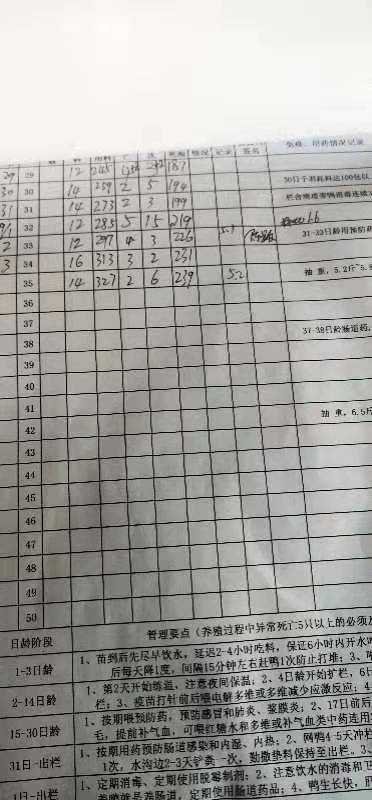 免疫、用药情况记录
29 29 12 245 187
30 30 14 259 2 5 194 30日子累耗料达100包以
31 31 14 273 2 3 199
32 12 285 5 15 219
2 33 12 297 4 3 226 5.1 31-33日龄用预防药
3 34 16 313 3 2 231
35 14 327 2 6 239 5.2 抽 重，5.2斤~5.
36
37
38 37-38日龄肠道药
39
40
41
42 抽 重，6.5斤
43
44
45
46
47
48
49
50
日龄阶段 管理要点（养殖过程中异常死亡5只以上的必须及
1-3日龄 1、苗到后先尽早饮水，延迟2-4小时吃料，保证6小时内开水
后每天降1度，间隔15分钟左右赶鸭1次防止打堆；3、
2-14日龄 1、第2天开始炼温，注意夜间保温；2、4日龄开始扩栏，6日
栏；3、疫苗打针前后喂电解多维或多维减少应激反应；4
15-30日龄 1、按期喂预防药，预防感冒和肺炎、浆膜炎；2、17日前后
毛，提前补气血，可喂红糖水和多维或补气血类中药连用
31日-出栏 1、按期用药预防肠道感染和内湿、内热；2、网鸭4-5天冲栏
1次，水沟边2-3天铲粪一次，勤撒垫料保持至出栏。3、
1日-出栏 1、定期消毒、定期使用脱霉制剂；2、注意饮水的消毒和卫
养肠道，定期使用肠道药品；4、鸭生长快，